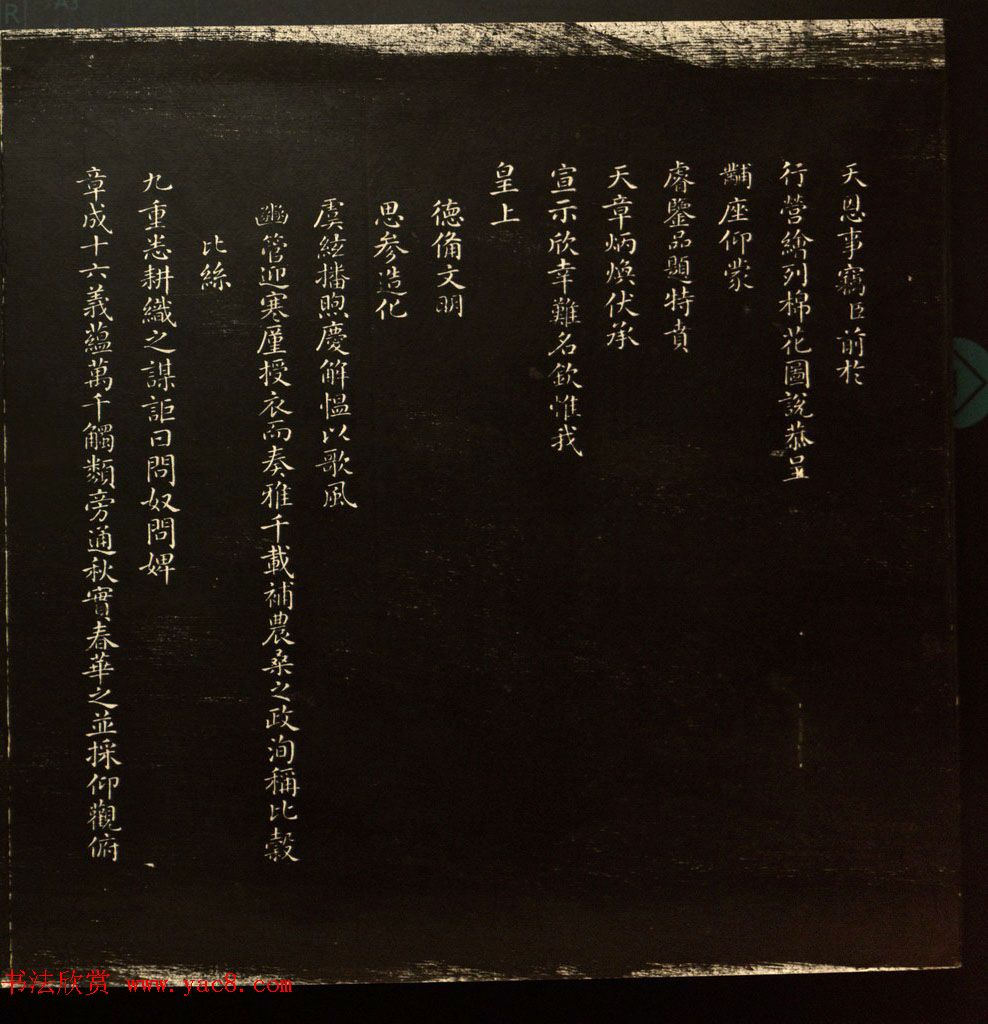 天恩事竊臣前於
行營繪列棉花圖說恭呈
黼座仰蒙
睿鑒品題特賁
天章炳煥伏承
宣示欣幸難名欽惟我
皇上
德俻文明
思參造化
虞絃播煦慶解慍以歌風
豳管迎寒厪授衣而奏雅千載補農桑之政洵稱比穀
比絲
九重恚耕織之謀詎曰問奴問婢
章成十六義蘊萬千觸類旁通秋實春華之並採仰觀俯
书法欣赏 www.yac8.com